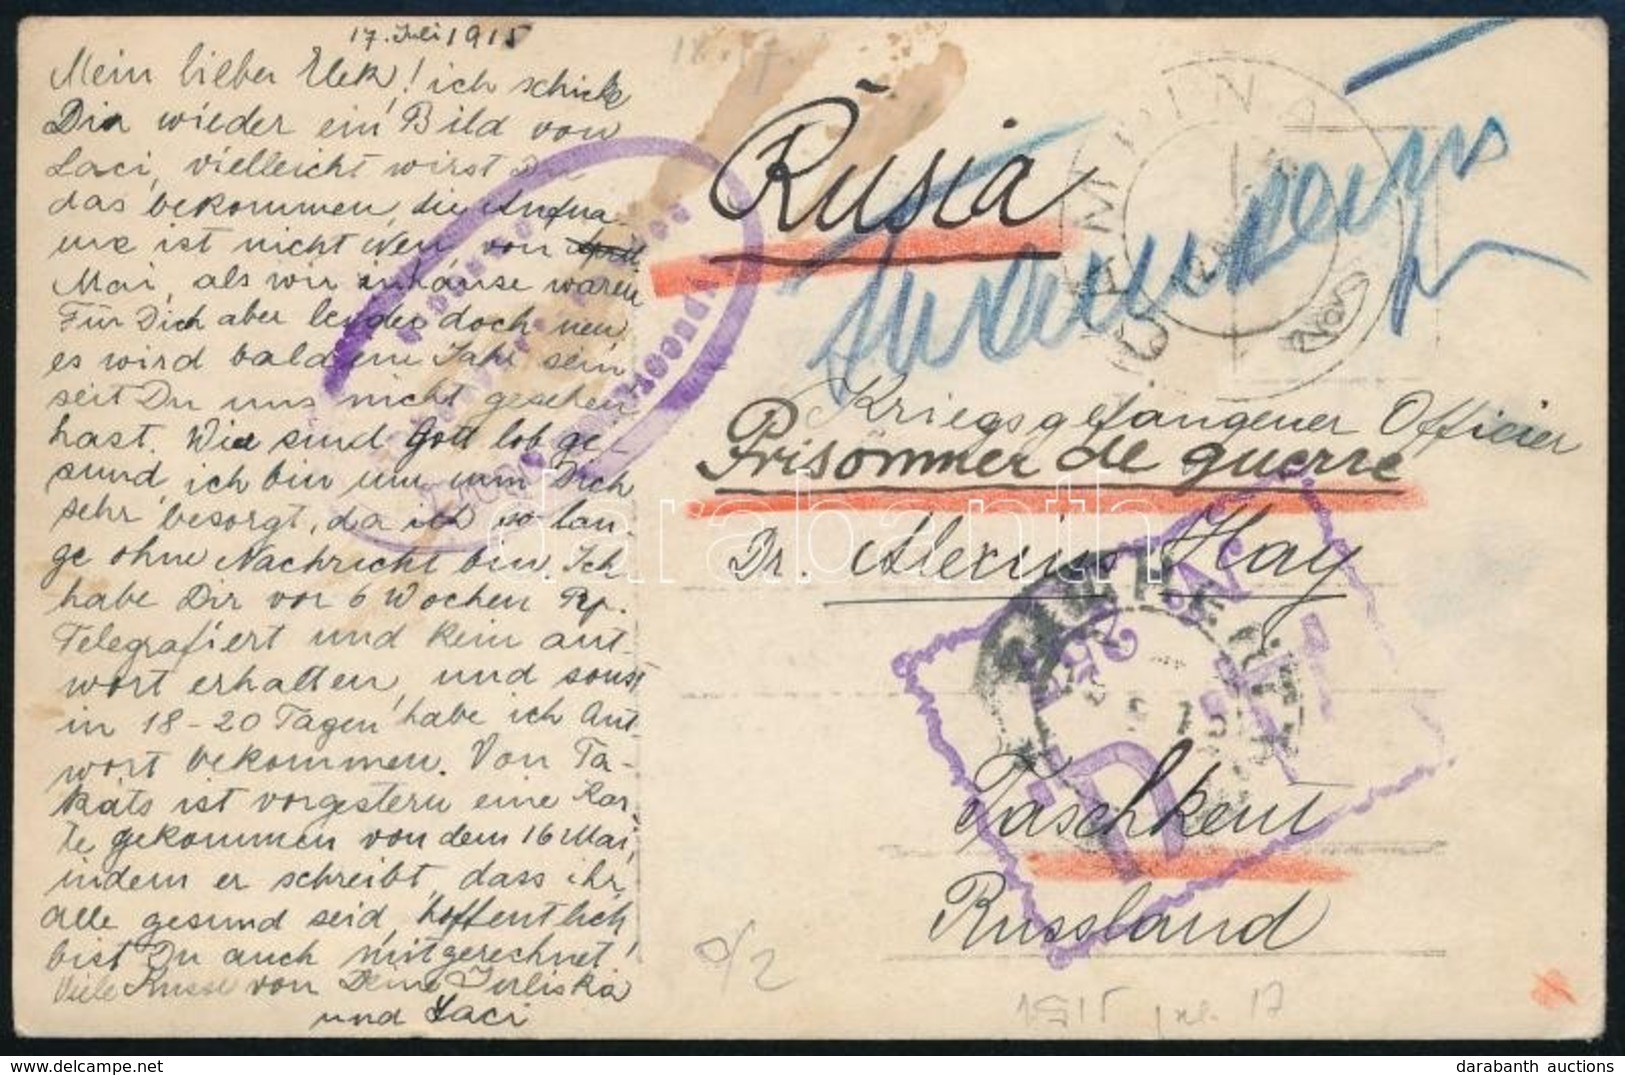 17. Juli 1915
Mein lieber Elek! ich schicke
Dir wieder ein Bild von
Laci, vielleicht wirst Du
das bekommen, die Aufna-
me ist nicht Neu von April
Mai, als wir zuhause waren
Für Dich aber leider doch neu,
es wird bald ein Jahr sein
seit Du uns nicht gesehen
hast. Wir sind Gott lob ge-
sund, ich bin nur um Dich
sehr besorgt, da ich so lan-
ge ohne Nachricht bin. Ich
habe Dir vor 6 Wochen Rp.
Telegrafiert und kein ant-
wort erhalten, und sonst
in 18-20 Tagen habe ich Ant-
wort bekommen. Von Ta-
kats ist vorgestern eine Kar
te gekommen von dem 16 Mai,
indem er schreibt, dass ihr
alle gesund seid, hoffentlich
bist Du auch mitgerechnet!
Viele Küsse von Deine Juliska
und Laci
Rusia
Kriegsgefangener Officier
Prisonnier de guerre
Dr. Alexius Hay
Taschkent
Russland
2/2
1915 jul. 17
darabanth
darabanth auctions